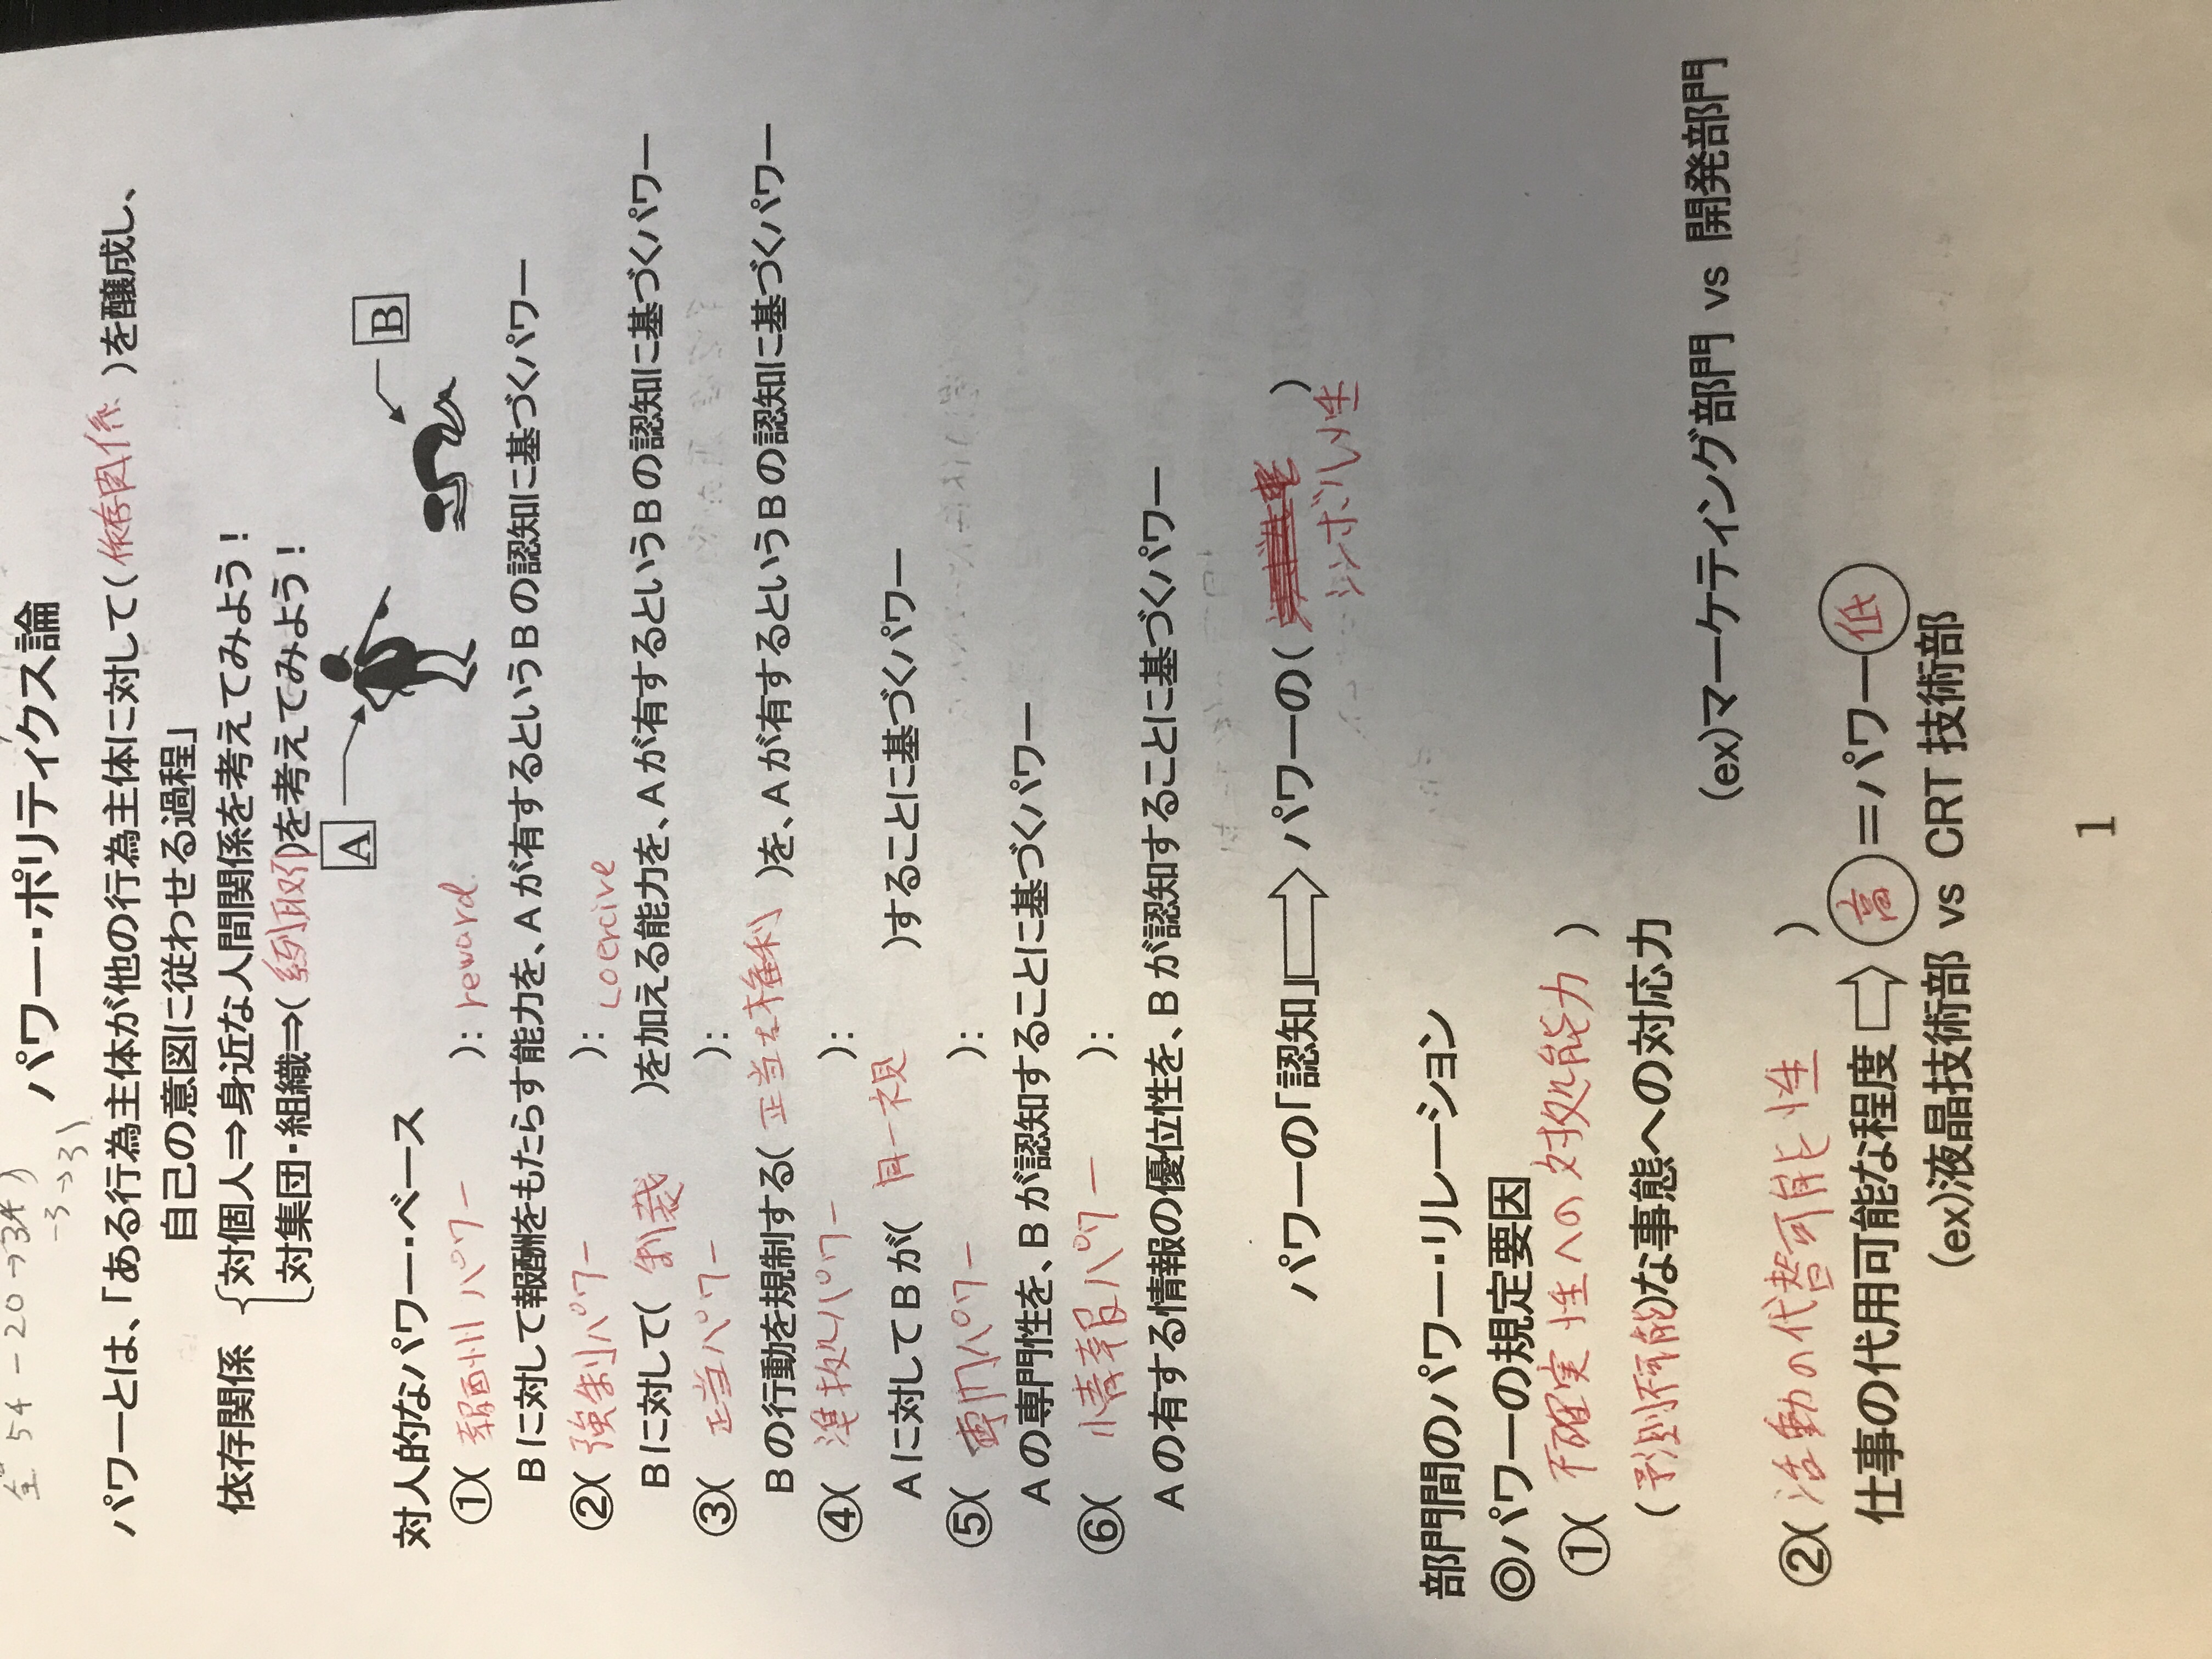 全 54 - 20 → 34
-3 → 31
パワー・ポリティクス論
パワーとは、「ある行為主体が他の行為主体に対して(依存関係)を醸成し、
自己の意図に従わせる過程」
依存関係 対個人⇒身近な人間関係を考えてみよう！
対集団・組織⇒(系列取引)を考えてみよう！
A
B
対人的なパワー・ベース
①(報酬パワー): reward.
Bに対して報酬をもたらす能力を、Aが有するというBの認知に基づくパワー
②(強制パワー): coercive
Bに対して(制裁)を加える能力を、Aが有するというBの認知に基づくパワー
③(正当パワー):
Bの行動を規制する(正当な権利)を、Aが有するというBの認知に基づくパワー
④(準拠パワー):
Aに対してBが(同一視)することに基づくパワー
⑤(専門パワー):
Aの専門性を、Bが認知することに基づくパワー
⑥(情報パワー):
Aの有する情報の優位性を、Bが認知することに基づくパワー
パワーの「認知」⇨パワーの( )
シンボル性
部門間のパワー・リレーション
◎パワーの規定要因
①(不確実性への対処能力)
(予測不可能)な事態への対応力
(ex)マーケティング部門 vs 開発部門
②(活動の代替可能性)
仕事の代用可能な程度⇨高＝パワー低
(ex)液晶技術部 vs CRT技術部
1